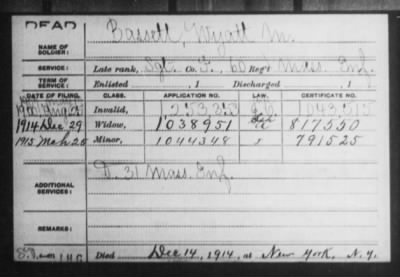 DEAD
NAME OF SOLDIER: Bassett, Wyatt M.
SERVICE: Late rank, Sgt. Co. F, 60 Reg't Mass. Inf.
TERM OF SERVICE: Enlisted , 1 Discharged , 1
DATE OF FILING. CLASS. APPLICATION NO. LAW. CERTIFICATE NO.
Invalid,
1914 Dec 29 Widow, 1038951 817550
1915 Mch 25 Minor, 1044348 791525
ADDITIONAL SERVICES: D. 31 Mass. Inf.
REMARKS:
Died Dec 14, 1914, at New York, N.Y.